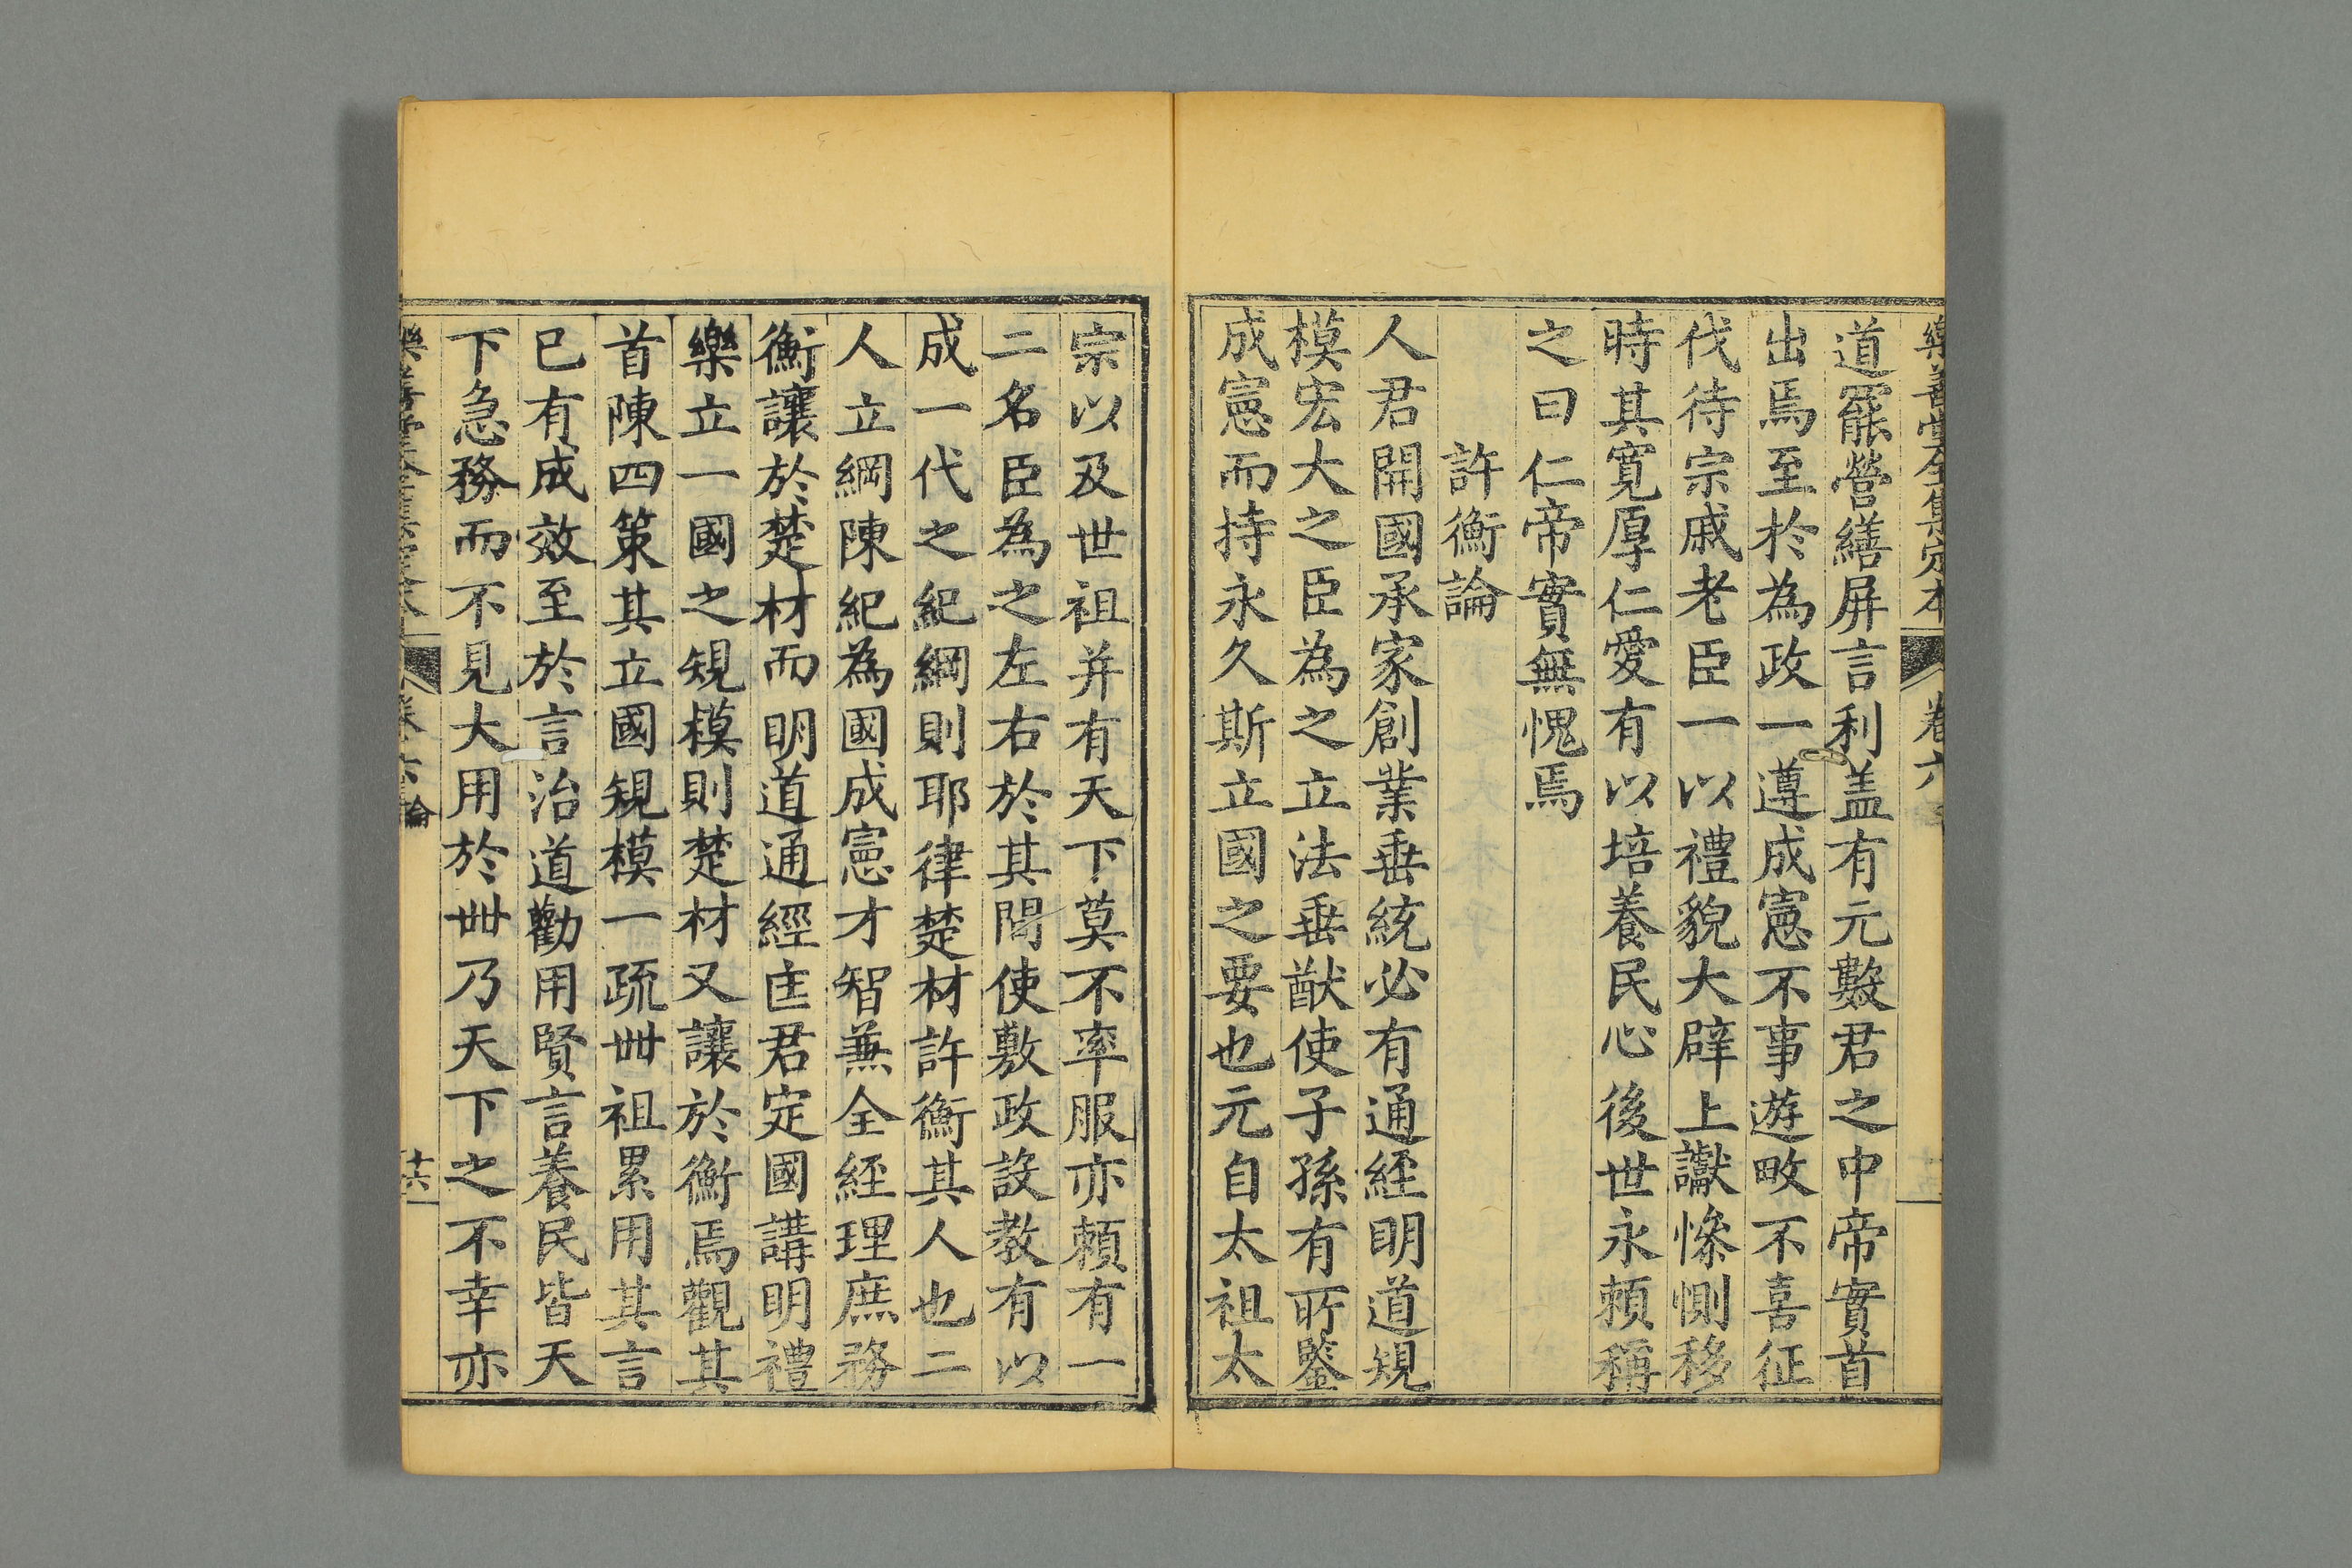 樂善堂全集定本 卷六
道罷營繕屏言利盖有元數君之中帝實首
出焉至於為政一遵成憲不事遊畋不喜征
伐待宗戚老臣一以禮貌大辟上讞慘惻移
時其寬厚仁愛有以培養民心後世永賴稱
之曰仁帝實無愧焉
許衡論
人君開國承家創業垂統必有通經明道規
模宏大之臣為之立法垂猷使子孫有所鑒
成憲而持永久斯立國之要也元自太祖太
宗以及世祖并有天下莫不率服亦賴有一
二名臣為之左右於其間使敷政設教有以
成一代之紀綱則耶律楚材許衡其人也二
人立綱陳紀為國成憲才智兼全經理庶務
衡讓於楚材而明道通經匡君定國講明禮
樂立一國之規模則楚材又讓於衡焉觀其
首陳四策其立國規模一疏世祖累用其言
已有成效至於言治道勸用賢言養民皆天
下急務而不見大用於世乃天下之不幸亦
樂善堂全集定本 卷六 論 十六